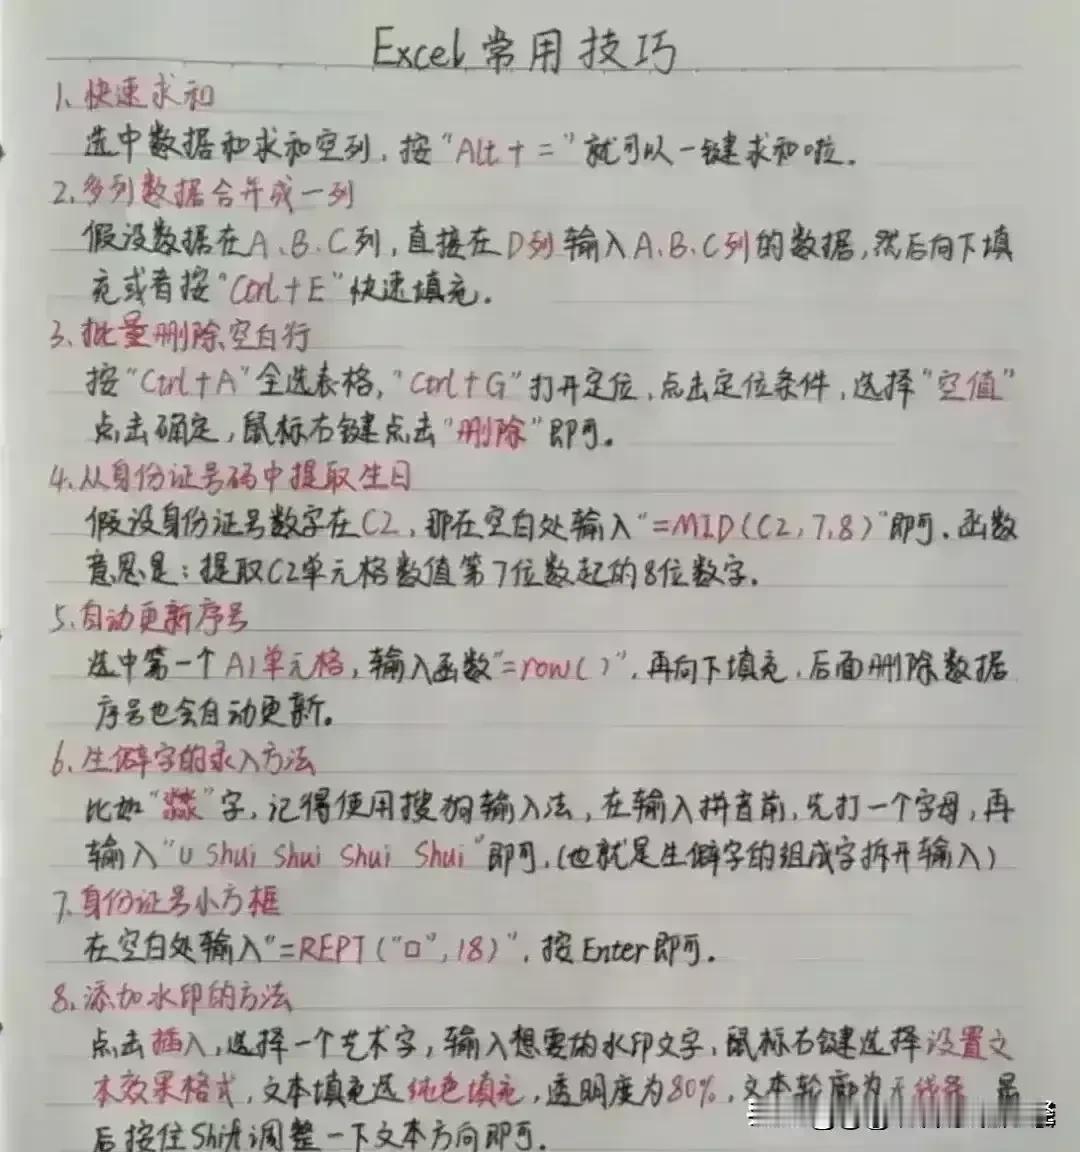 Excel常用技巧
1、快速求和
选中数据和求和空列，按“Alt+=”就可以一键求和啦。
2、多列数据合并成一列
假设数据在A、B、C列，直接在D列输入A、B、C列的数据，然后向下填
充或者按“Ctrl+E”快速填充。
3、批量删除空白行
按“Ctrl+A”全选表格，“Ctrl+G”打开定位，点击定位条件，选择“空值”
点击确定，鼠标右键点击“删除”即可。
4、从身份证号码中提取生日
假设身份证号数字在C2，那在空白处输入“=MID(C2,7,8)”即可，函数
意思是：提取C2单元格数值第7位数起的8位数字。
5、自动更新序号
选中第一个A1单元格，输入函数“=row()”，再向下填充，后面删除数据
序号也会自动更新。
6、生僻字的录入方法
比如“㵘”字，记得使用搜狗输入法，在输入拼音前，先打一个字母，再
输入“U Shui Shui Shui Shui”即可，(也就是生僻字的组成字拆开输入)
7、身份证号小方框
在空白处输入“=REPT("□",18)”，按Enter即可。
8、添加水印的方法
点击插入，选择一个艺术字，输入想要的水印文字，鼠标右键选择设置文
本效果格式，文本填充选纯色填充，透明度为80%，文本轮廓为无线条，最
后按住Shift调整一下文本方向即可。